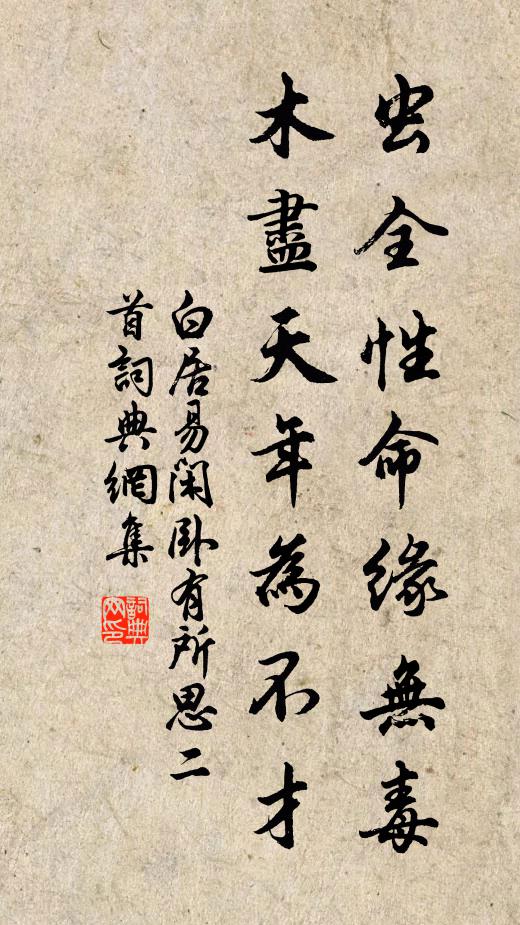 虫全性命緣無毒
木盡天年為不才
白居易閑臥有所思二
首詞典網集
詞典網印